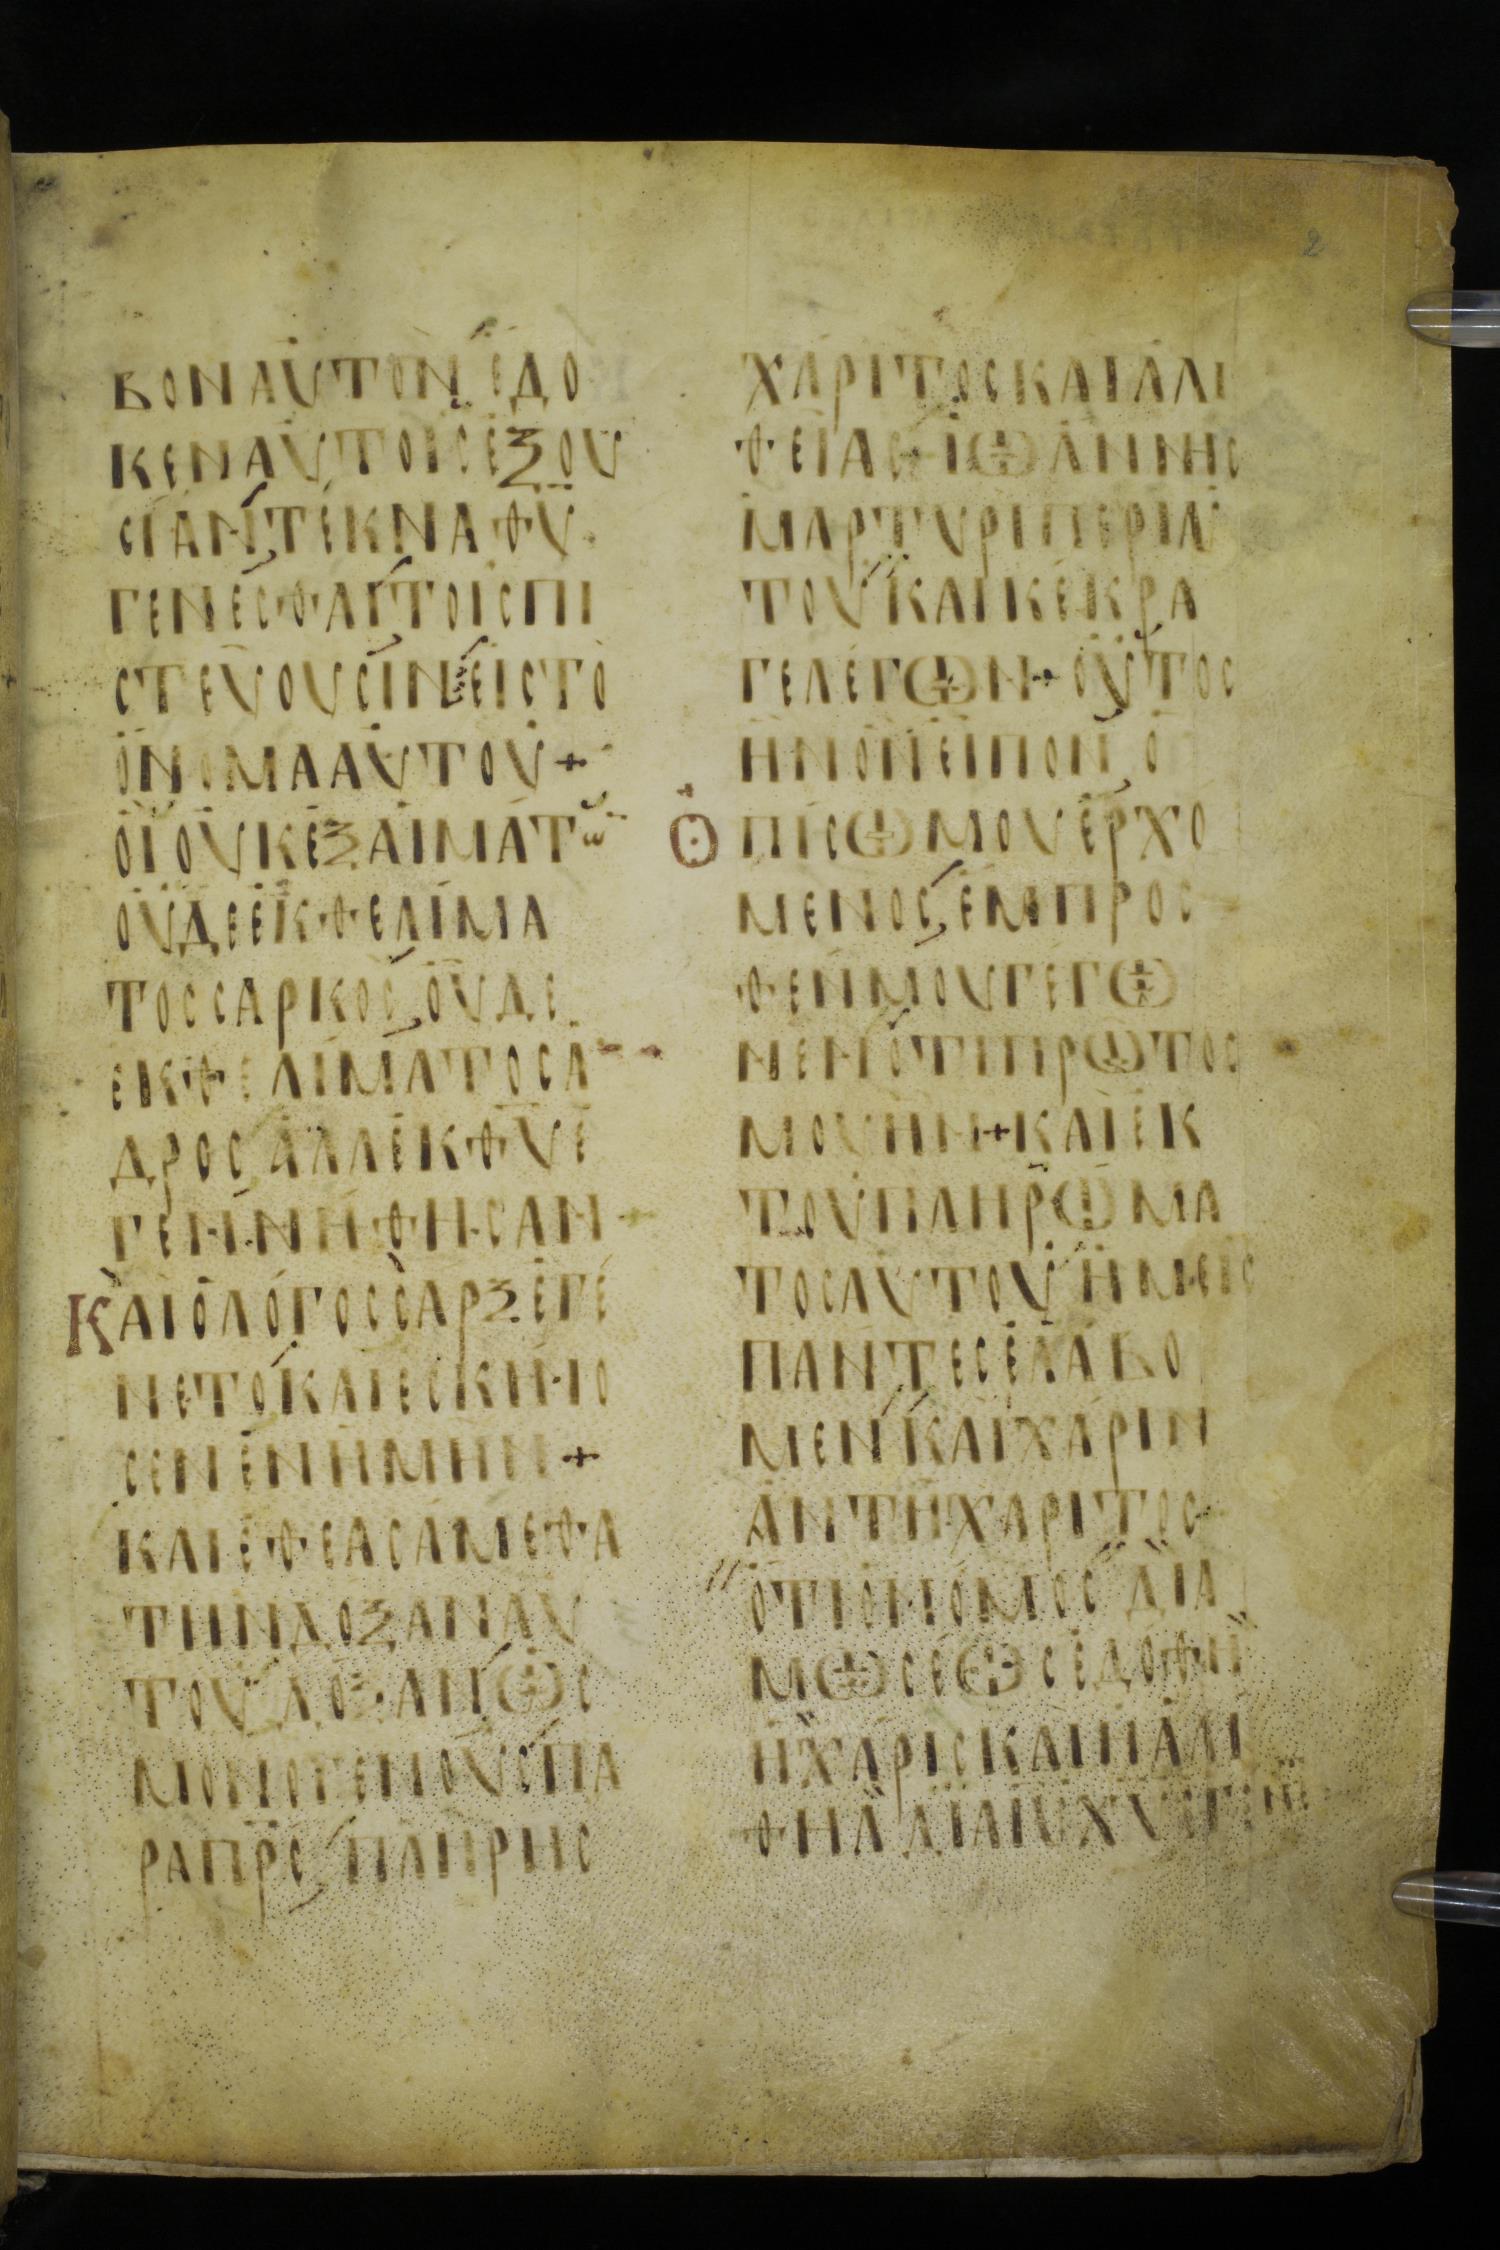 2
ΒΟΝΑΥΤΟΝ ΕΔΟ
ΚΕΝΑΥΤΟΙΣΕΞΟΥ
ΣΙΑΝΤΕΚΝΑΘΥ
ΓΕΝΕΣΘΑΙΤΟΙΣΠΙ
ΣΤΕΥΟΥΣΙΝΕΙΣΤΟ
ΟΝΟΜΑΑΥΤΟΥ+
ΟΙΟΥΚΕΞΑΙΜΑΤω
ΟΥΔΕΕΚΘΕΛΙΜΑ
ΤΟΣΣΑΡΚΟΣ ΟΥΔΕ
ΕΚΘΕΛΙΜΑΤΟΣΑ
ΔΡΟΣ ΑΛΛΕΚΘΥΕ
ΓΕΝΝΗΘΗΣΑΝ+
ΚΑΙΟΛΟΓΟΣΣΑΡΞΕΓΕ
ΝΕΤΟΚΑΙΕΣΚΗΝΟ
ΣΕΝΕΝΗΜΗΝ+
ΚΑΙΕΘΕΑΣΑΜΕΘΑ
ΤΗΝΔΟΞΑΝΑΥ
ΤΟΥ ΔΟΞΑΝΩΣ
ΜΟΝΟΓΕΝΟΥΣΠΑ
ΡΑΠΡΣ ΠΛΗΡΗΣ
ΧΑΡΙΤΟΣΚΑΙΑΛΙ
ΘΕΙΑΣ+ΙΩΑΝΝΗΣ
ΜΑΡΤΥΡΙΠΕΡΙΑΥ
ΤΟΥΚΑΙΚΕΚΡΑ
ΓΕΛΕΓΩΝ+ΟΥΤΟΣ
ΗΝΟΝΕΙΠΟΝ Ο
ΠΙΣΩΜΟΥΕΡΧΟ
ΜΕΝΟΣ ΕΜΠΡΟΣ
ΘΕΝΜΟΥΓΕΓΩ
ΝΕΝΟΤΙΠΡΩΤΟΣ
ΜΟΥΗΝ+ΚΑΙΕΚ
ΤΟΥΠΛΗΡΩΜΑ
ΤΟΣΑΥΤΟΥ ΗΜΕΙΣ
ΠΑΝΤΕΣΕΛΑΒΟ
ΜΕΝ ΚΑΙΧΑΡΙΝ
ΑΝΤΗΧΑΡΙΤΟΣ
ΟΤΙΟΝΟΜΟΣ ΔΙΑ
ΜΩΣΕΩΣΕΔΟΘΗ
ΗΧΑΡΙΣΚΑΙΗΑΛΙ
ΘΗΑ ΔΙΑΙΥΧΥΕΓΕΝΕ